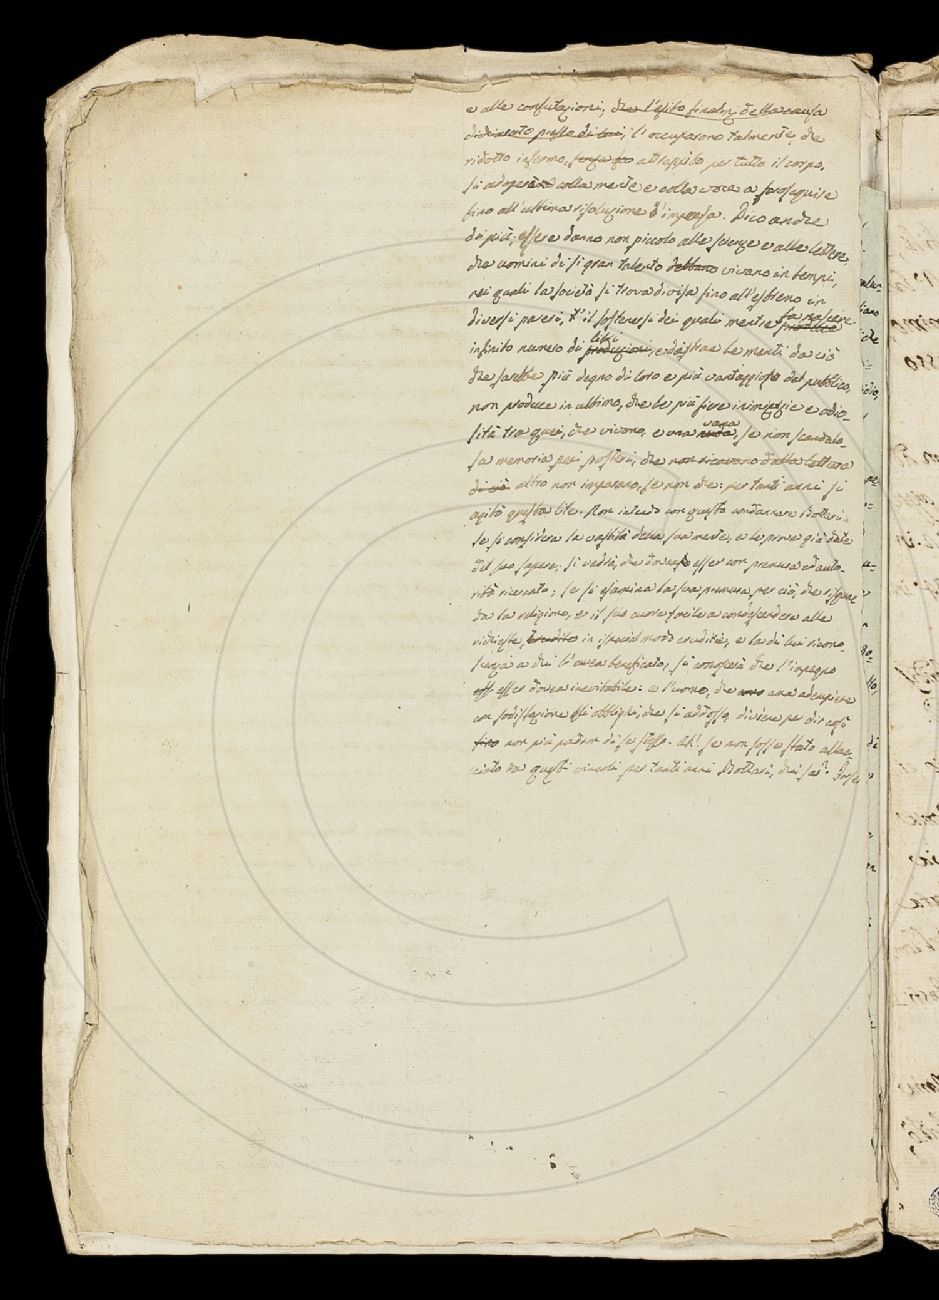 e alle confutazioni, che l'esito finalm. della causa
di, l'occuparono talmente, che
ridotto infermo, senza attrappito per tutto il corpo,
si adoperò colla mente e colla voce a proseguire
fino all'ultima risoluzione l'impresa. Dico anche
di più; essere danno non piccolo alle scienze e alle lettere,
che uomini di sì gran talento debbano vivano in tempi,
nei quali la società si trova divisa fino all'estremo in
diversi pareri, il sostenersi dei quali mentre produce fa nascere
infinito numero di produzioni libri, e distrae le menti da ciò
che sarebbe più degno di loro e più vantaggioso del pubblico,
non produce in ultimo, che le più fiere inimicizie e odio-
sità tra quei, che vivono, e una nuda vana, se non scandalo-
sa memoria pei posteri, che non ricavano dalla lettura
di ciò altro non imparano, se non che: per tanti anni si
agitò questa lite. Non intendo con questo condannare Bottari.
Se si considera la vastità della sua mente, e le prove già date
del suo sapere, si vedrà, che doveva esser con premura ed auto-
rità ricercato; se si esamina la sua premura per ciò, che riguar-
da la religione, e il suo cuore facile a condescendere alle
richieste, erudito in special modo erudite, e la di lui ricono-
scenza a chi l'avea beneficato, si conoscerà che l'impegno
esser dovea inevitabile: e l'uomo, che ama adempiere
con sodisfazione gli obblighi, che si addossa, diviene per dir così
fino non più padron di se stesso. Ah! se non fosse stato allac-
ciato da questi vincoli per tanti anni Bottari, chi sa?